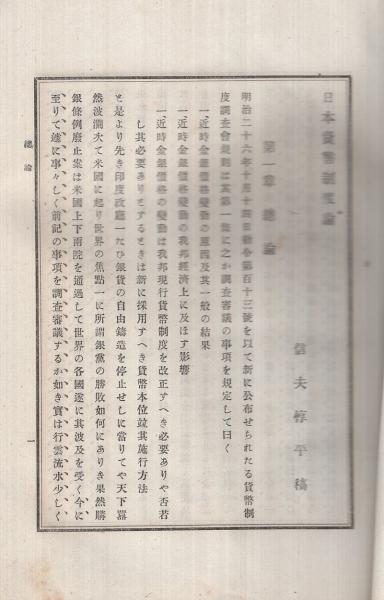 日本貨幣制度論
信夫惇平稿
第一章 總論
明治二十六年十月十四日勅令第百十三號を以て新に公布せられたる貨幣制
度調査會規則は其第一條に之か調査審議の事項を規定して曰く
一、近時金銀價格變動の原因及其一般の結果
一、近時金銀價格變動の我邦經濟上に及ほす影響
一、近時金銀價格の變動は我邦現行貨幣制度を改正すへき必要ありや否若
し其必要ありとするときは新に採用すへき貨幣本位竝其施行方法
と是より先き印度政廳一たひ銀貨の自由鑄造を停止せしに當りてや天下囂
然波瀾大て米國に起り世界の焦點一に所謂銀黨の勝敗如何にありき果然購
銀條例廢止案は米國上下兩院を通過して世界の各國遂に其波及を受く今に
至りて遽に事々しく前記の事項を調査審議するか如き實は行雲流水少しく
總論
一